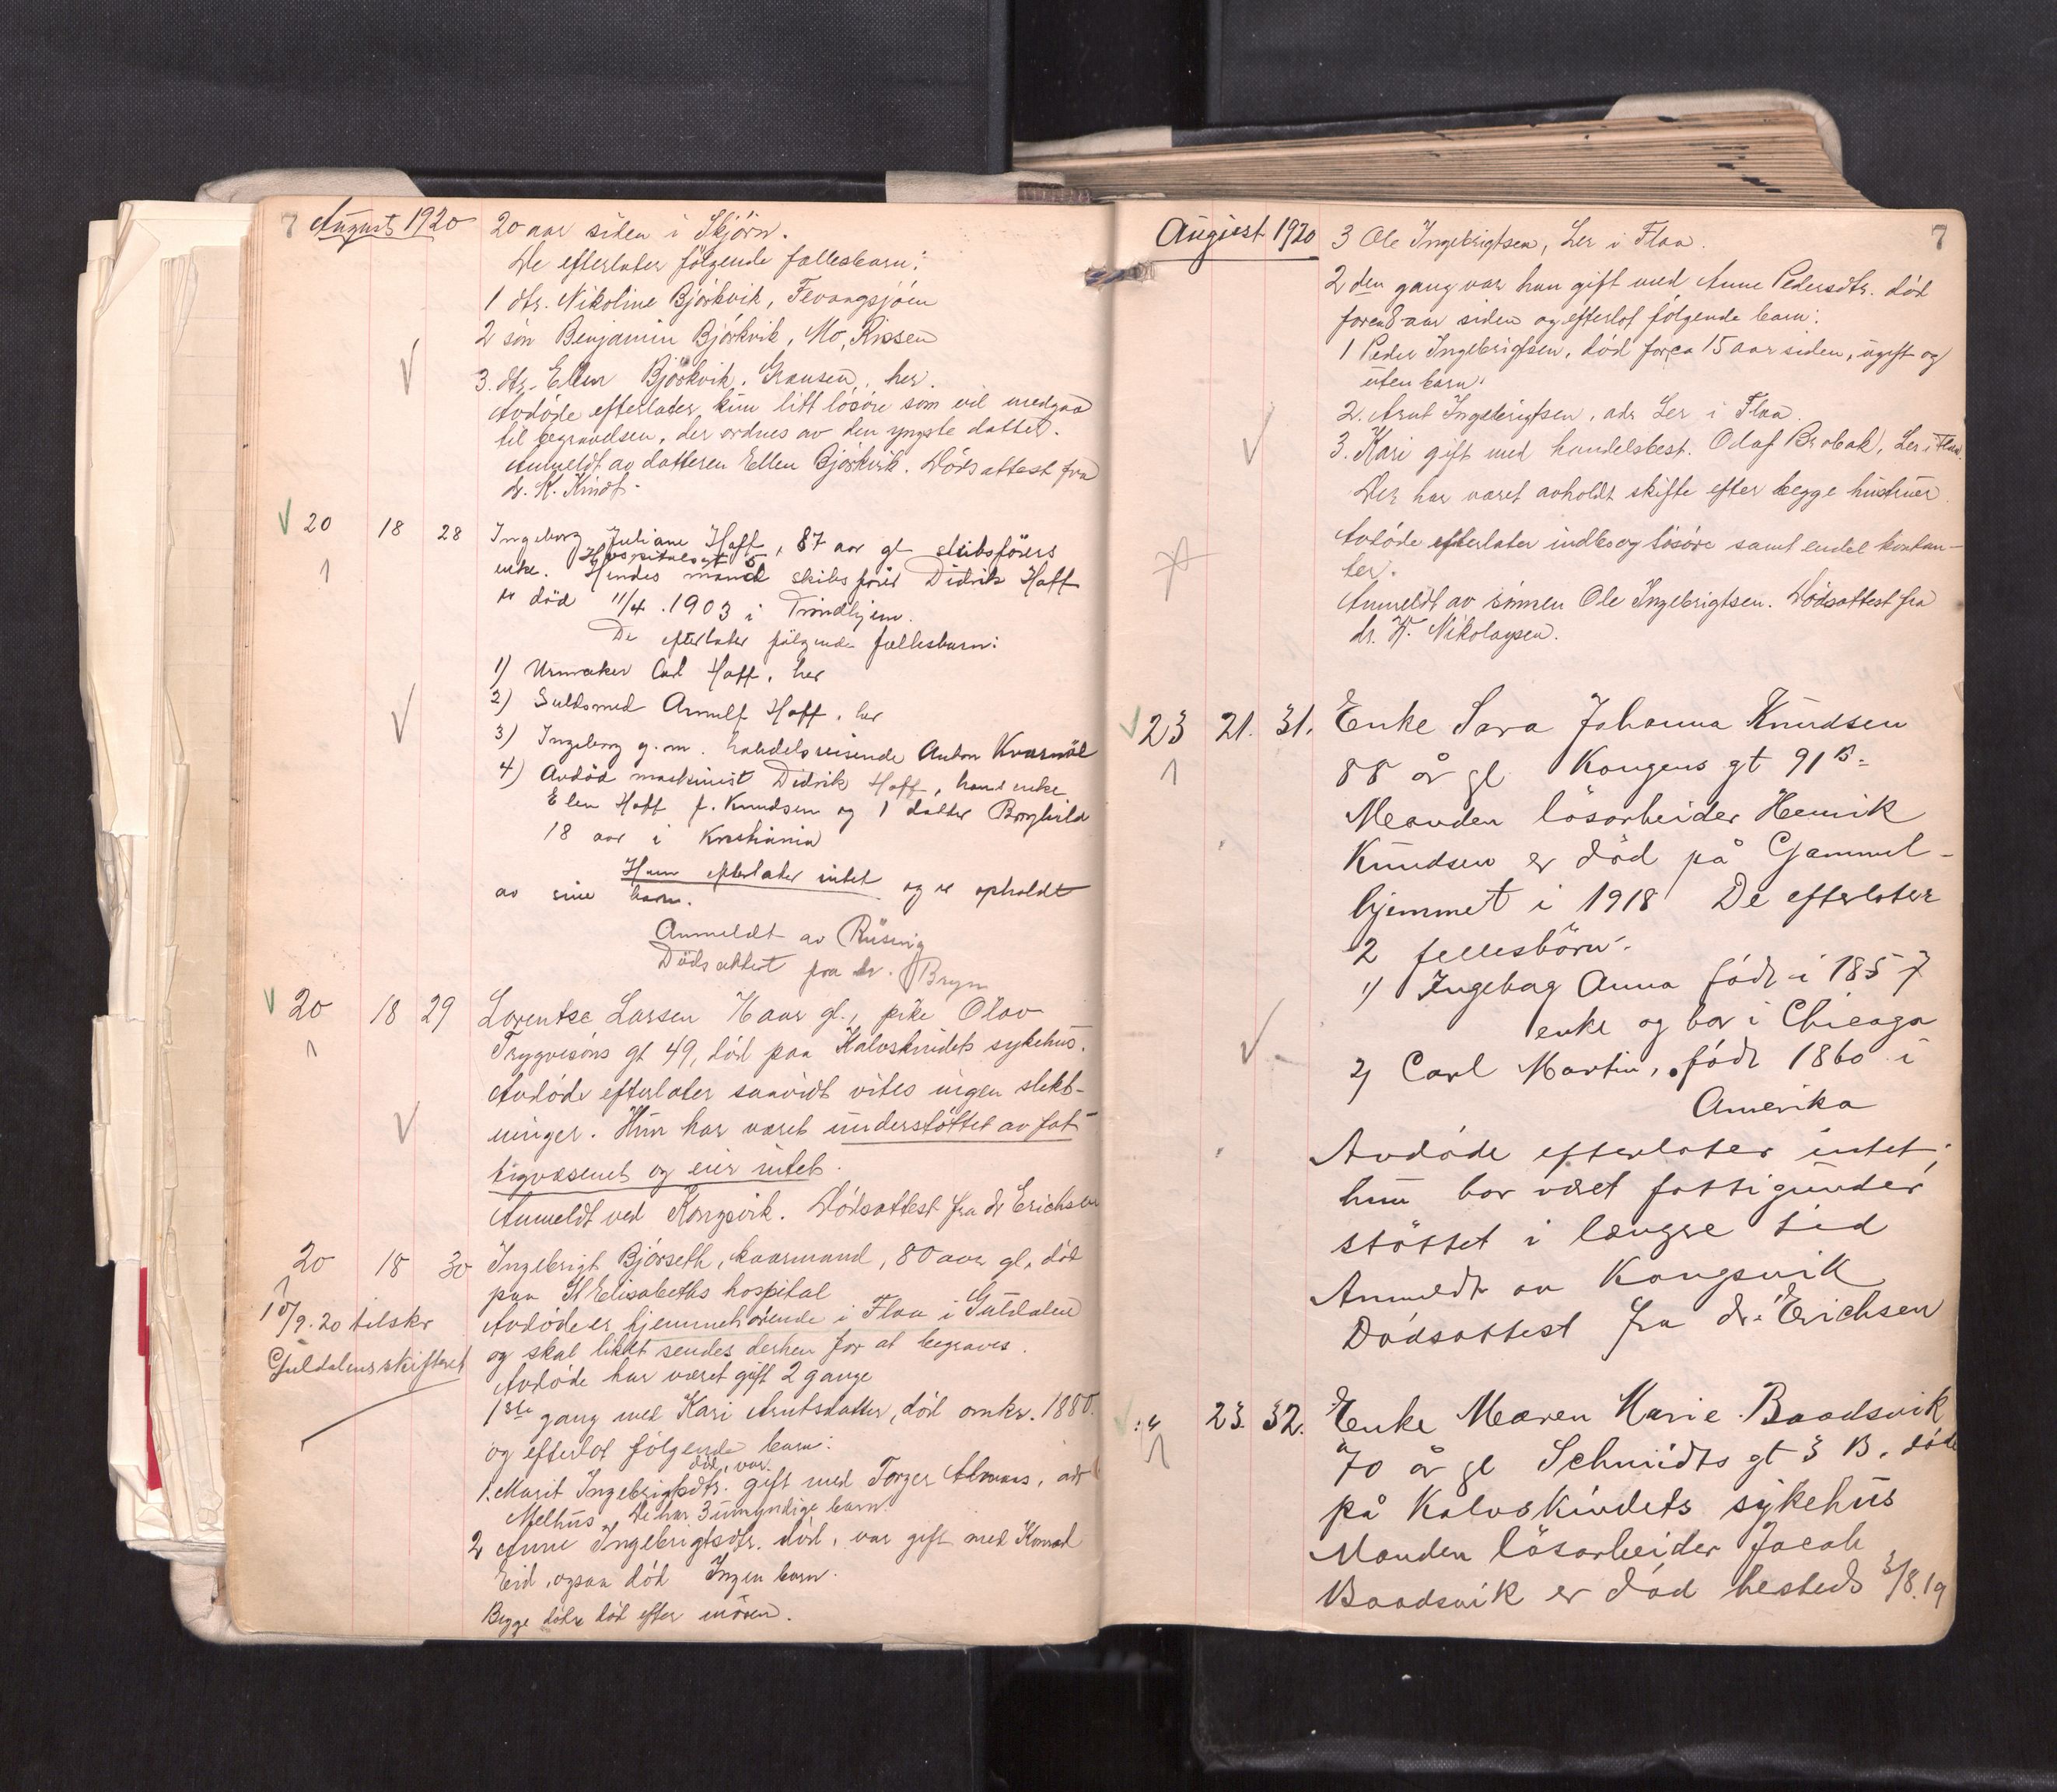 7 August 1920
20 aar siden i Skjörn.
De efterlater følgende fællesbarn:
1 dtr. Nikoline Bjørkvik, Fevaagsjøen
2 søn Benjamin Bjørkvik, Mo, Rissen
3. dtr. Ellen Bjørkvik, her.
Avdøde efterlater kun litt løsøre som vil medgaa
til begravelsen, der ordnes av den yngste datter.
Anmeldt av datteren Ellen Bjørkvik. Dødsattest fra
dr. K. Kindt.
20 18 28 Ingeborg Juliane Hoff, 87 aar gl skibsførers
Hospitalsgt 5
enke. Hendes mand skibsfører Didrik Hoff
1
er død 11/4 1903 i Trondhjem.
De efterlater følgende fællesbarn:
1) Urmaker Carl Hoff, her
2) Guldsmed Arnulf Hoff, her
3) Ingeborg g. m. handelsreisende Anton
4) Avdød maskinist Didrik Hoff, hans enke
Elen Hoff f. Knudsen og 1 datter Borghild
18 aar i Kristiania
Hun efterlater intet og er opholdt
av sine barn.
Anmeldt av Rüsing
Dødsattest fra dr. Bryn
20 18 29 Lorentse Larsen 76 aar gl., pike Olav
1
Trygvesøns gt 49, død paa Kalvskindets sykehus.
Avdøde efterlater saavidt vites ingen slekt-
ninger. Hun har været understøttet av fat-
tigvæsenet og eier intet.
Anmeldt ved Kongsvik. Dødsattest fra dr Erichsen
20 18 30 Ingebrigt Bjørseth, kaarmand, 80 aar gl, død
1
paa St Elisabeths hospital
10/9.20 tilskr
Guldalens skifteret
Avdøde er hjemmehørende i Flaa i Guldalen
og skal liket sendes derhen for at begraves.
Avdøde har været gift 2 gange
1ste gang med Kari Arntsdatter, død omkr. 1880.
og efterlot følgende barn:
død, var
1. Marit Ingebrigtsdtr. gift med Torger, adr
Melhus De har 3 umyndige barn
2 Anne Ingebrigtsdtr. død, var gift med Konrad
Eid, ogsaa død Ingen barn.
Begge døtre død efter moren.
August 1920
7
3 Ole Ingebrigtsen, Ler i Flaa.
2den gang var han gift med Anne Pedersdtr. død
for ca 8 aar siden og efterlot følgende barn:
1 Peder Ingebrigtsen, død for ca 15 aar siden, ugift og
uten barn.
2. Arnt Ingebrigtsen, adr Ler i Flaa.
3. Kari gift med handelsbest. Olaf Brobak, Ler i Flaa.
Der har været avholdt skifte efter begge hustruer.
Avdøde efterlater indbo og løsøre samt endel kontan-
ter.
Anmeldt av sønnen Ole Ingebrigtsen. Dødsattest fra
dr. K. Nikolaysen.
23 21. 31. Enke Sara Johanna Knudsen
1
88 år gl Kongens gt 91 B.
Manden løsarbeider Henrik
Knudsen er død på Gammel-
hjemmet i 1918 De efterlater
2 fellesbörn.
1) Ingebog Anna född i 1857
enke og bor i Chicago
2) Carl Martin, född 1860 i
Amerika
Avdöde efterlater intet;
hun har vært fattigunder
støttet i længre tid
Anmeldt av Kongsvik
Dødsattest fra dr. Erichsen
23. 32. Enke Maren Marie Baadsvik
70 år gl Schmidts gt 3 B. døde
på Kalvskindets sykehus
Manden løsarbeider Jacob
Baadsvik er død hersteds 3/8.19